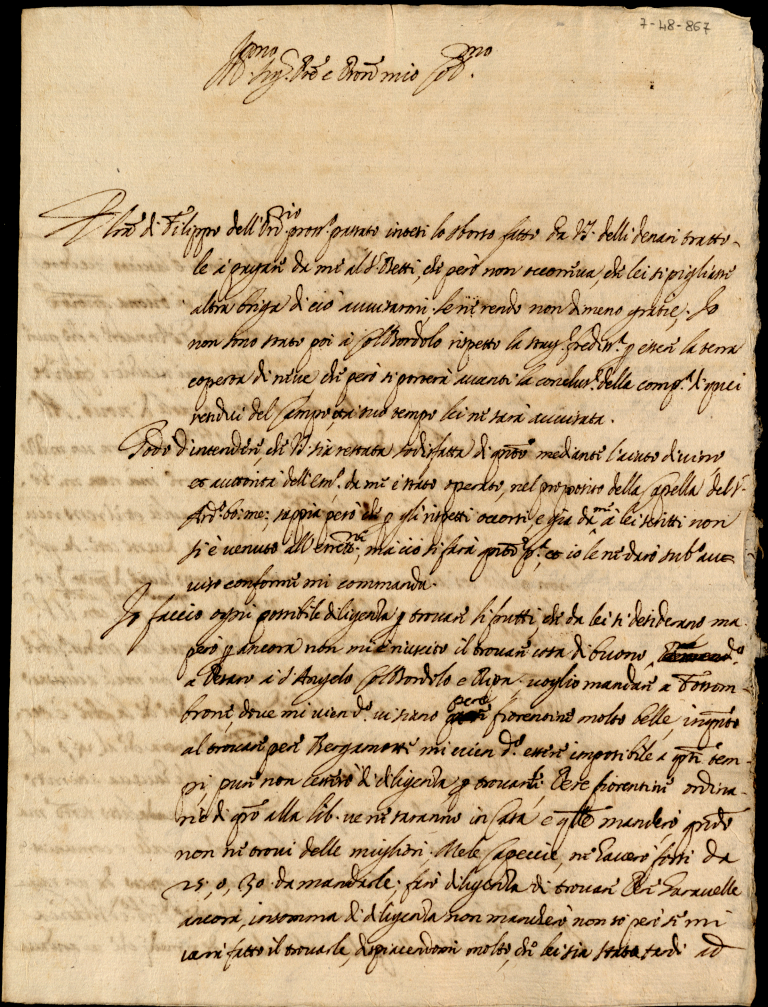 7-48-867
Ill.mo
Sig.r P.ron e P.ron mio
di Filippo dell' pross.o passato intesi lo sborso fatto da V.S. delli denari tratto-
le à pagare da me al S.r Betti, che però non occorreva, che lei si pigliasse
altra briga di ciò avvisarmi, le ne rendo non dimeno gratie, Io
non sono stato poi à ColBordolo rispetto la stag.e fredda p esser la terra
coperta di neve che però si porterà avanti la conclus.e delle comp.e di quei
residui del Campo, et à suo tempo lei ne sarà avvisata.
Godo d'intendere che V.S. sia restata sodisfatta di q.nto mediante l'aiuto divino
et auttorità dell'Em.o da me è stato operato, nel proposito della Capella del S.r
sappia però che p gli rispetti occorsi, e già da me à lei scritti non
si è venuto all' ma ciò si farà q.to p.a, et io le ne darò sub.o av-
viso conforme mi commanda.
Io faccio ogni possibile diligenza p trovare li frutti, che da lei si desiderano ma
però p ancora non mi è riuscito il trovare cosa di buono,
a Pesaro à S. Angelo ColBordolo e Ripa. voglio mandare a Fossom-
brone, dove mi vien d.o vi siano pere fiorentine molto belle, in q.nto
al trovare pere Bergamotte mi vien d.o essere impossibile a q.sti tem-
pi, pure non cesserò di diligenza p trovarle. Pere fiorentine ordina-
rie di q.ro alla lib. ve ne saranno in Casa, e q.lle manderò q.ndo
non ne trovi delle migliori. Mele Capeccie, ne haverò forsi da
25, o, 30 da mandarle; farò diligenza di trovare Pere Garavelle
ancora, insomma di diligenza non mancherò non so però se mi
verrà fatto il trovarle, dispiacendomi molto, che lei sia stata tardi ad